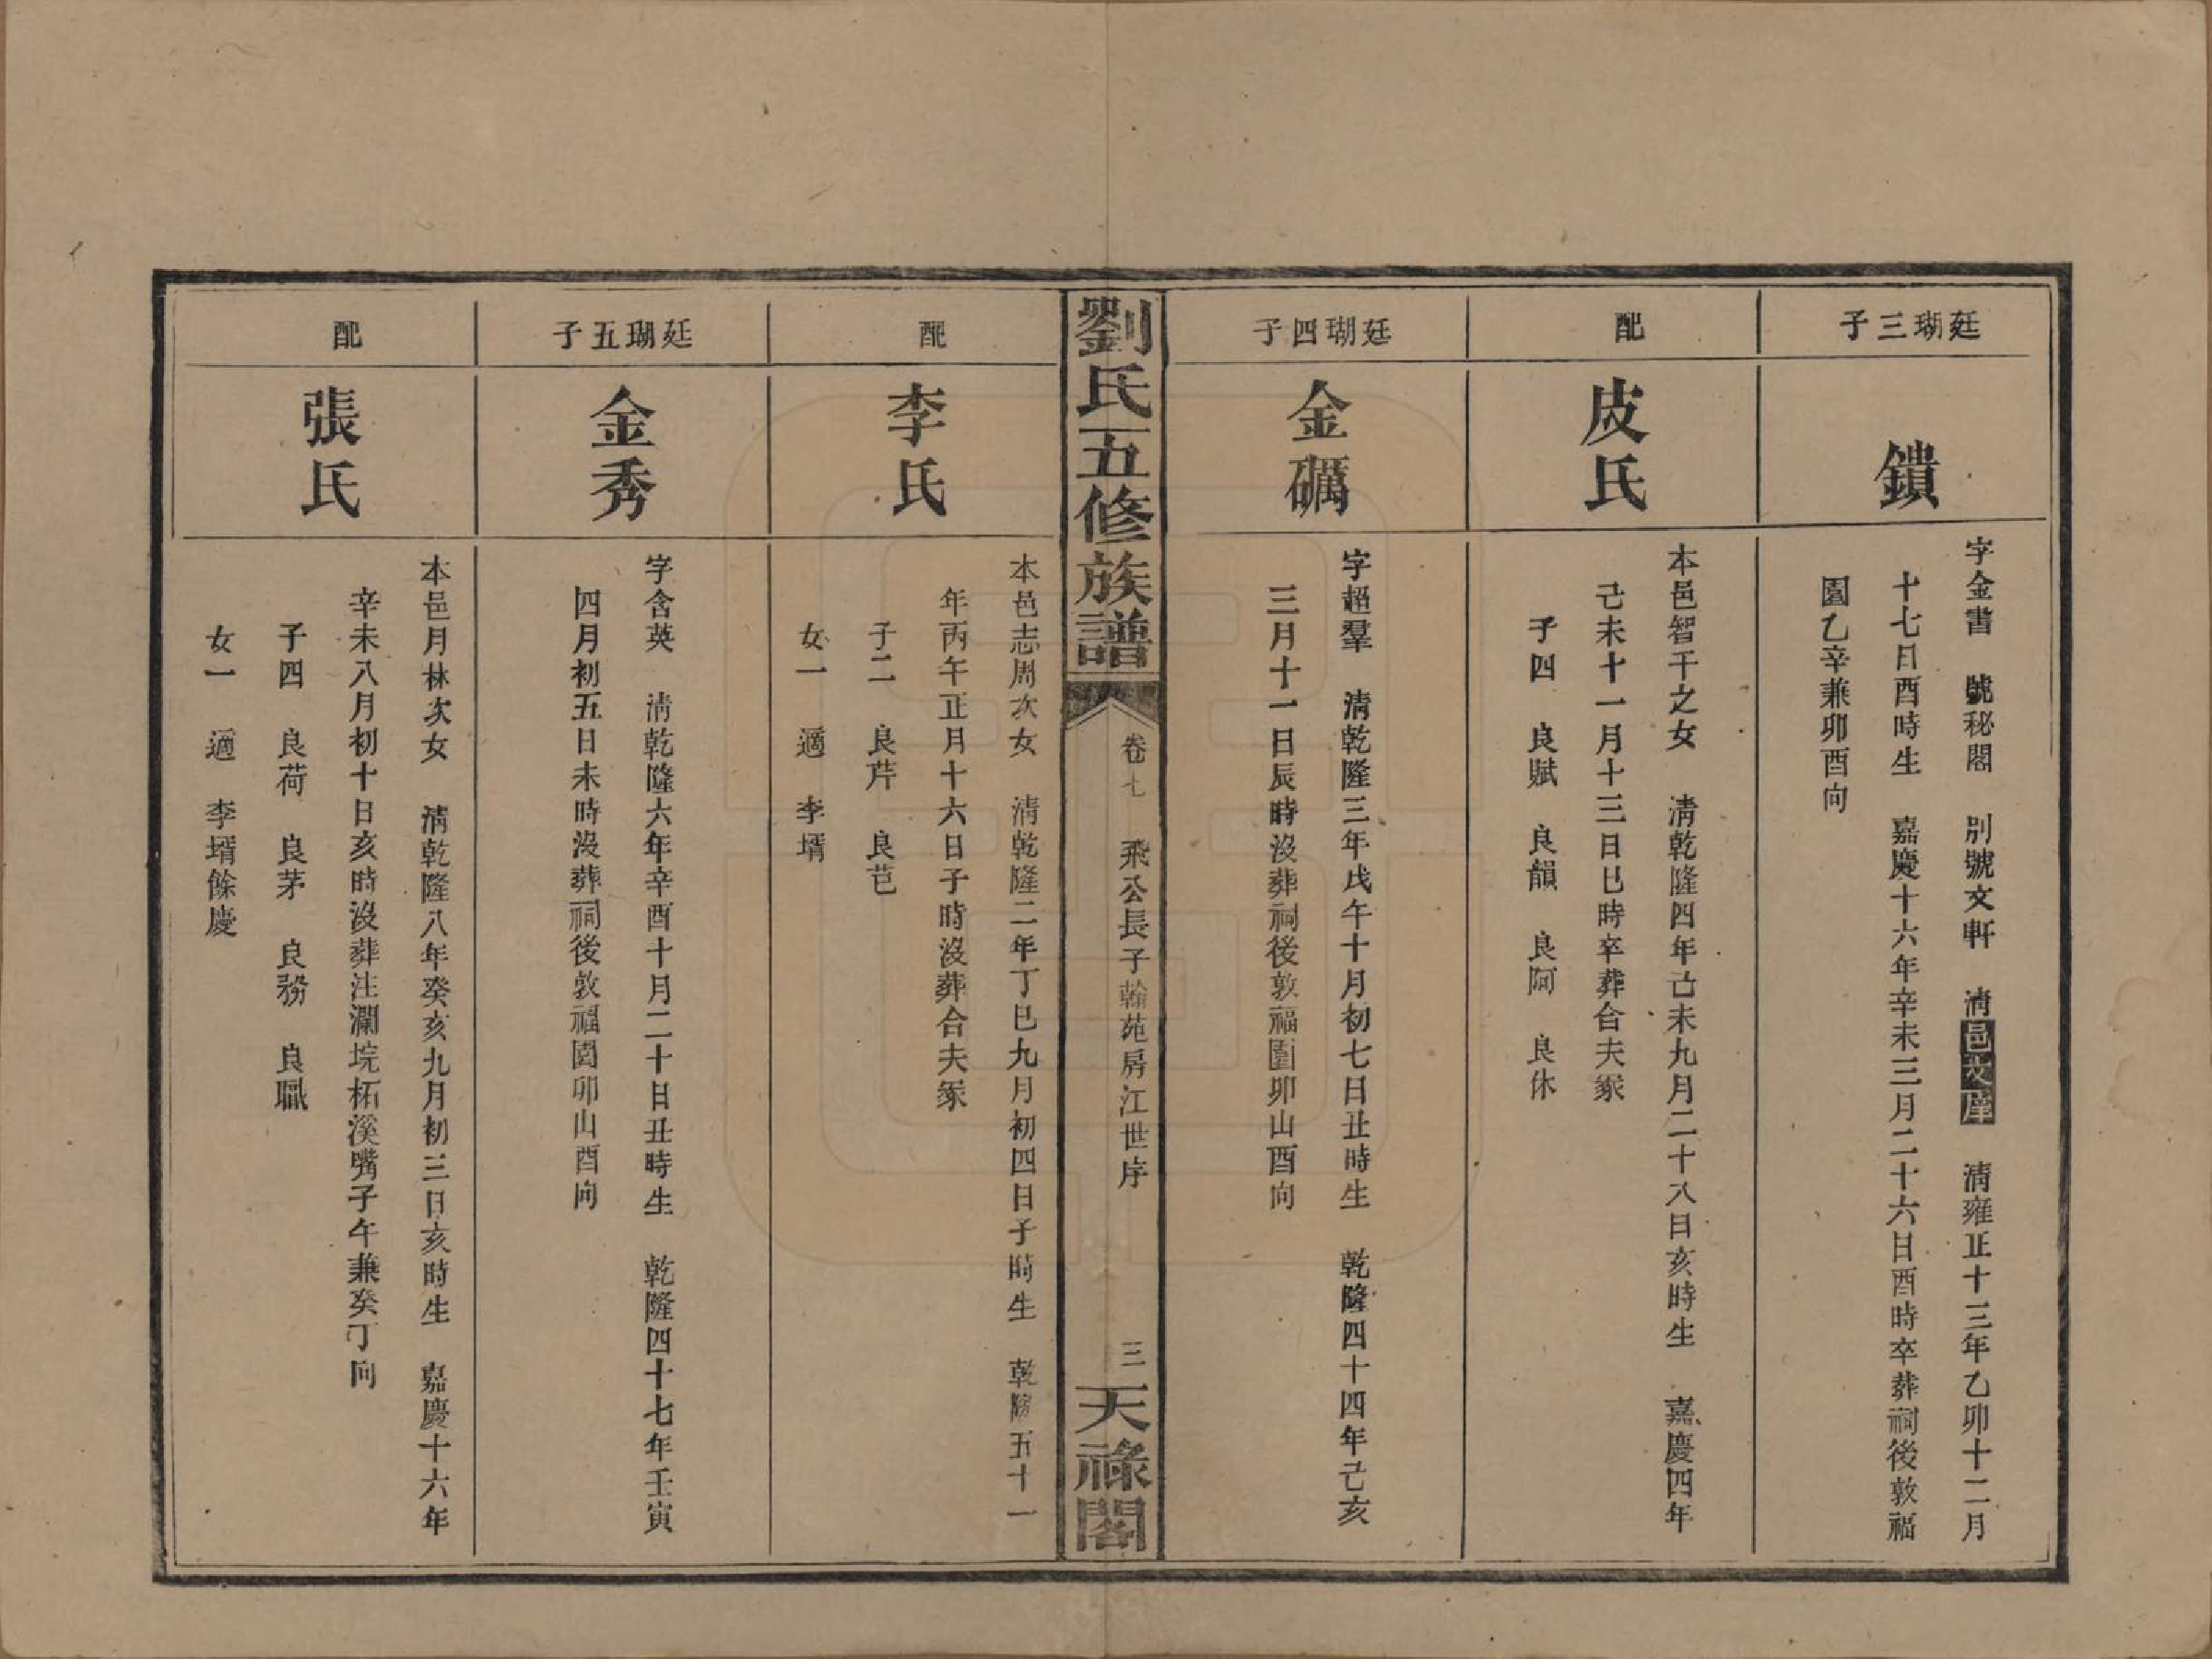 廷瑚三子
鐀
字金書　號秘閣　別號文軒　清邑文庠　清雍正十三年乙卯十二月
十七日酉時生　嘉慶十六年辛未三月二十六日酉時卒葬祠後敦福
園乙辛兼卯酉向
配
皮氏
本邑智干之女　清乾隆四年己未九月二十八日亥時生　嘉慶四年
己未十一月十三日巳時卒葬合夫冢
子四　良賦　良韻　良阿　良休
廷瑚四子
金礪
字超羣　清乾隆三年戊午十月初七日丑時生　乾隆四十四年己亥
三月十一日辰時沒葬祠後敦福園卯山酉向
劉氏五修族譜
卷七　飛公長子翰苑房江世序　三
天祿閣
配
李氏
本邑志周次女　清乾隆二年丁巳九月初四日子時生　乾隆五十一
年丙午正月十六日子時沒葬合夫冢
子二　良芹　良芑
女一　適　李壻
廷瑚五子
金秀
字含英　清乾隆六年辛酉十月二十日丑時生　乾隆四十七年壬寅
四月初五日未時沒葬祠後敦福園卯山酉向
配
張氏
本邑月林次女　清乾隆八年癸亥九月初三日亥時生　嘉慶十六年
辛未八月初十日亥時沒葬注瀾垸柘溪嘴子午兼癸丁向
子四　良荷　良茅　良務　良職
女一　適　李壻餘慶